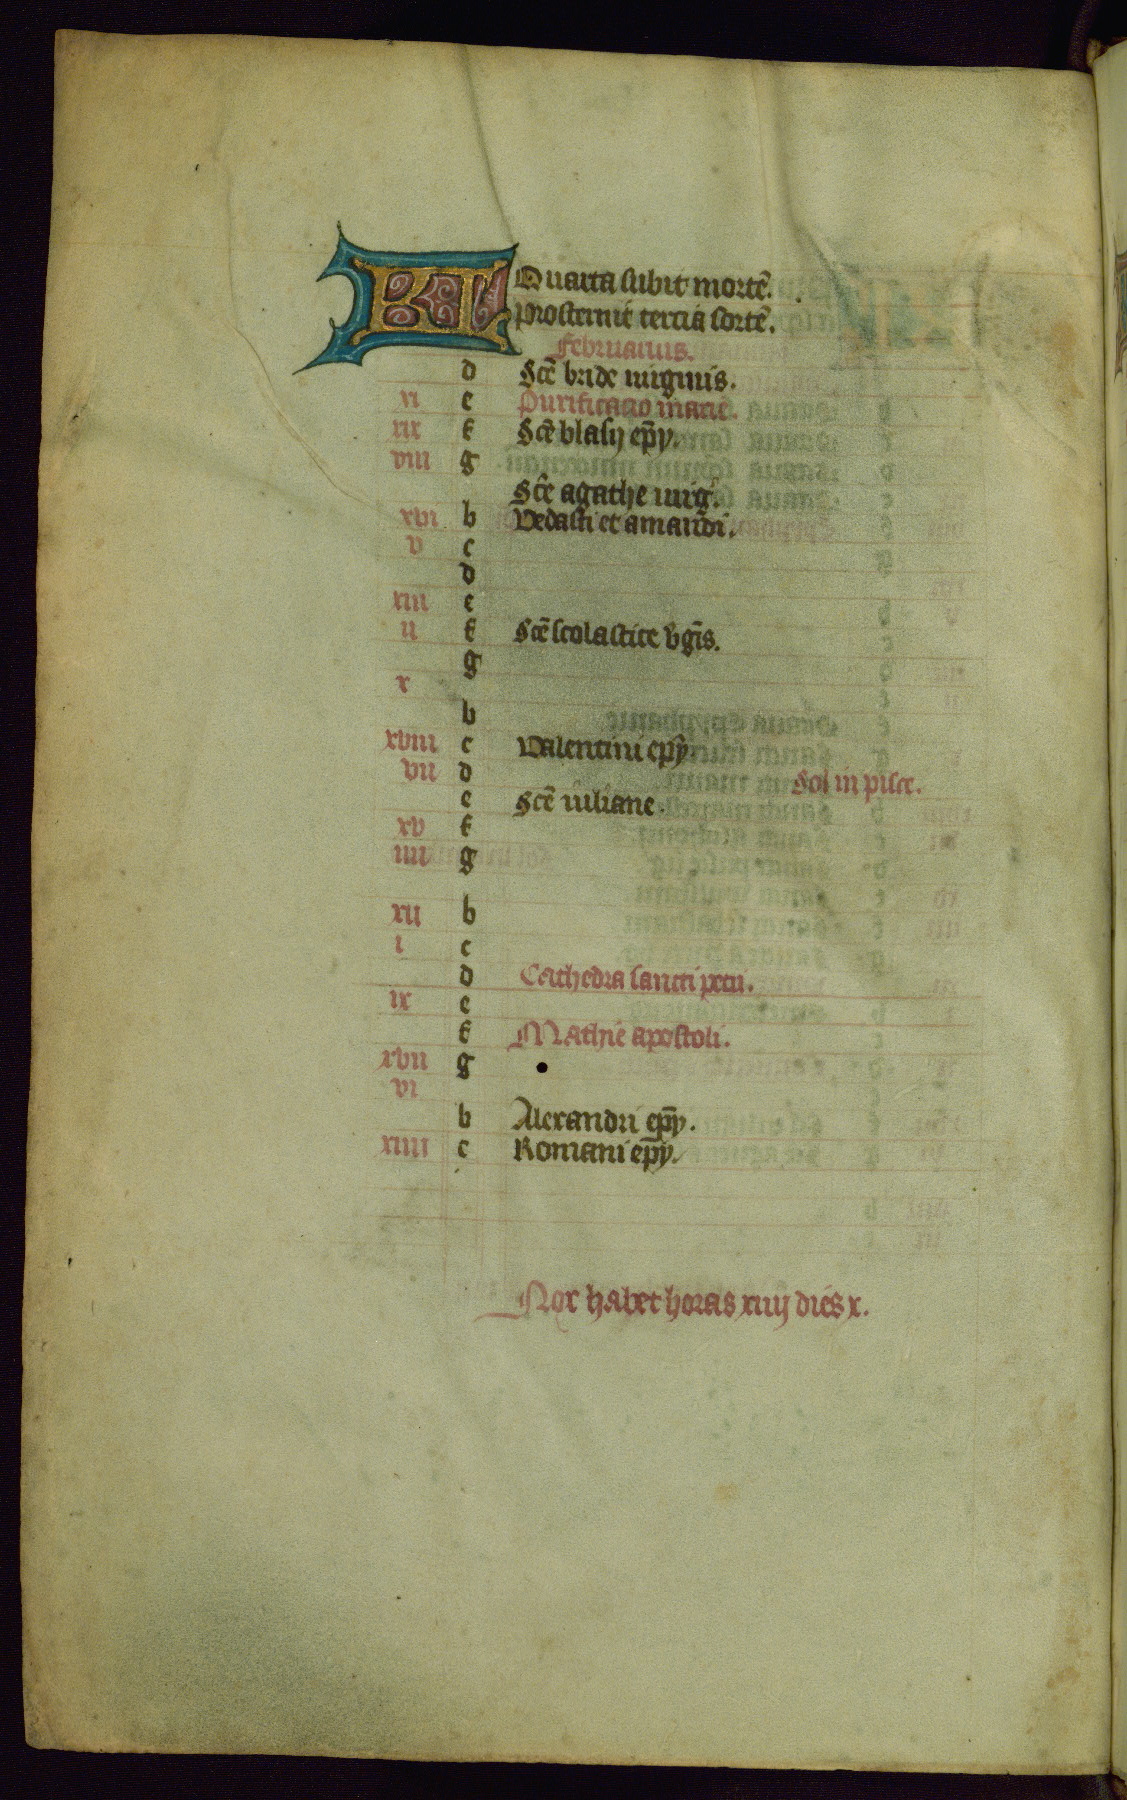 KL Quarta subit mortē.
Prosternit tercia sortē.
Februarius.
d Scē bride uirginis.
xi e Purificatio marie.
xix f Scī blasij epȳ.
viii g
Scē agathe uirḡ.
xvi b Vedasti et amandi.
v c
d
xiii e
ii f Scē scolastice v̄gīs.
g
x
b
xviii c Valentini epȳ.
vii d Sol in pisce.
e Scē iuliane.
xv f
iiii g
xii b
i c
d Cathedra sancti petri.
ix e
f Mathie apostoli.
xvii g
vi
b Alexandri epȳ.
xiiii c Romani epȳ.
Nox habet horas xiiij dies x.